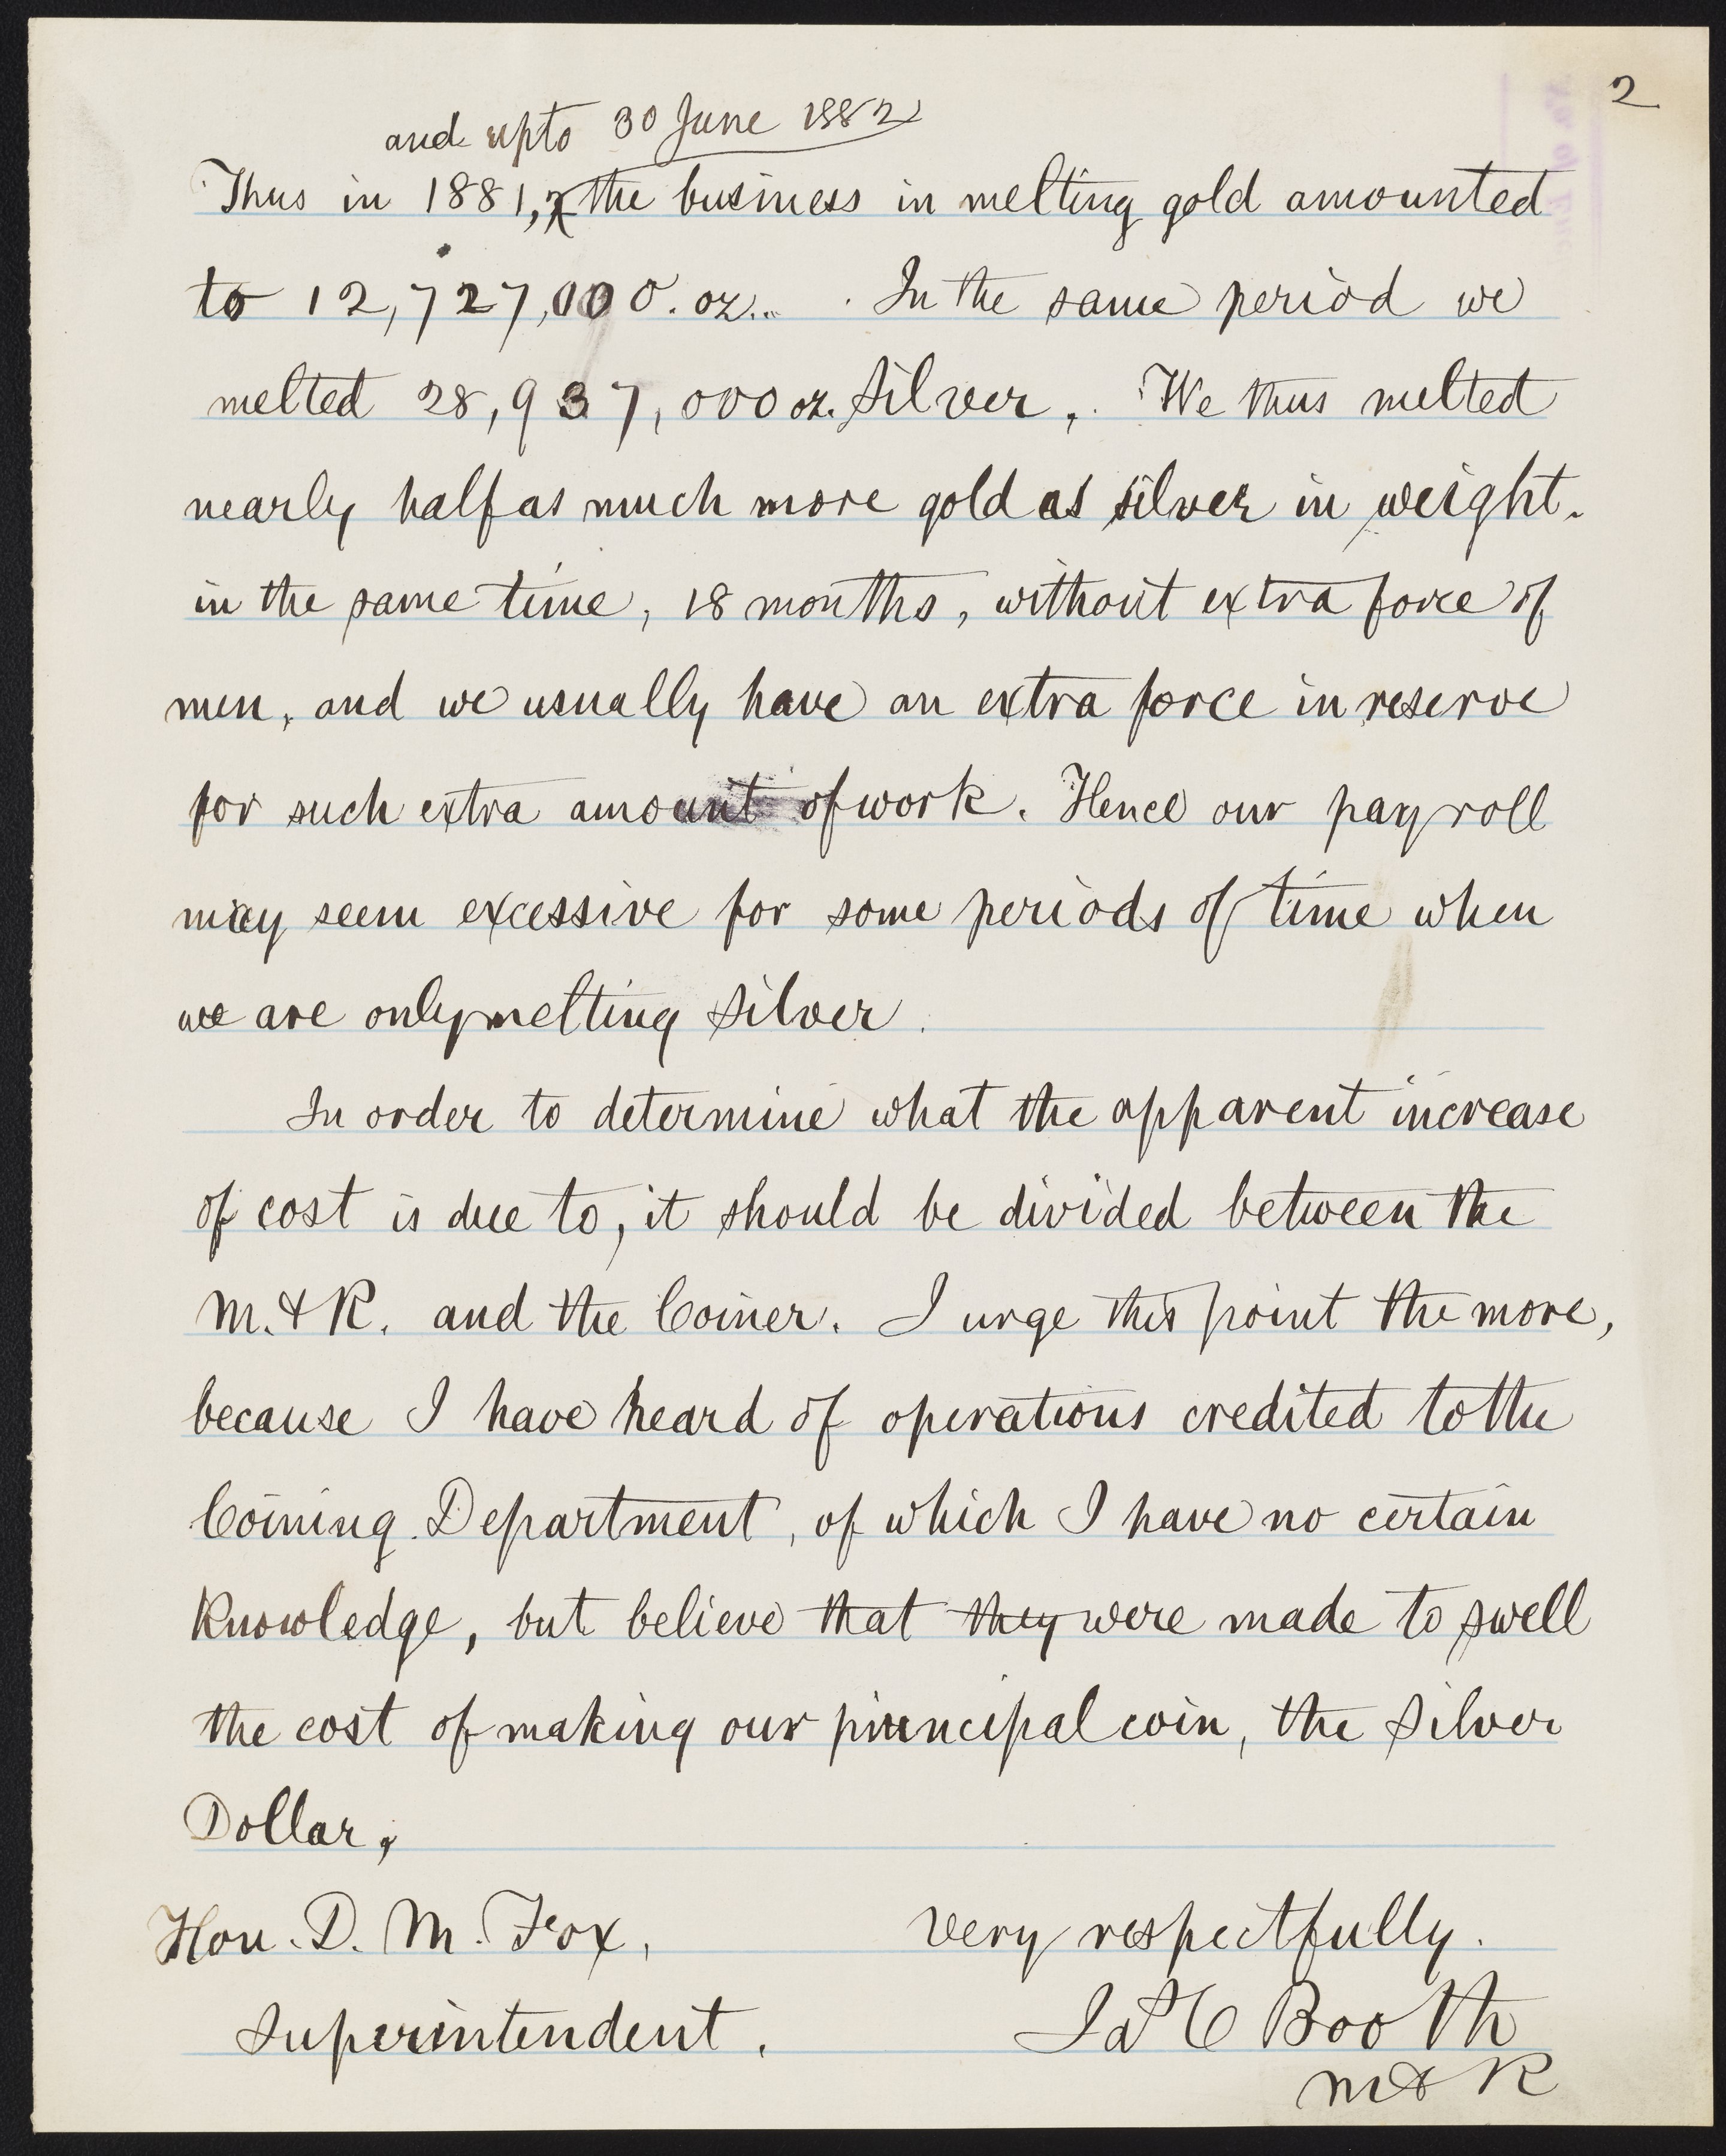 2
and upto 30 June 1882
Thus in 1881, the business in melting gold amounted
to 12,727,000. oz. In the same period we
melted 28,937,000 oz. Silver. We thus melted
nearly half as much more gold as silver in weight.
in the same time, 18 months, without extra force of
men, and we usually have an extra force in reserve
for such extra amount of work. Hence our pay roll
may seem excessive for some periods of time when
we are only melting silver.
In order to determine what the apparent increase
of cost is due to, it should be divided between the
M. & R. and the Coiner. I urge this point the more,
because I have heard of operations credited to the
Coining Department, of which I have no certain
Knowledge, but believe that they were made to swell
the cost of making our principal coin, the Silver
Dollar.
Hon. D. M. Fox, Very respectfully.
Superintendent. Jas C Booth
M & R